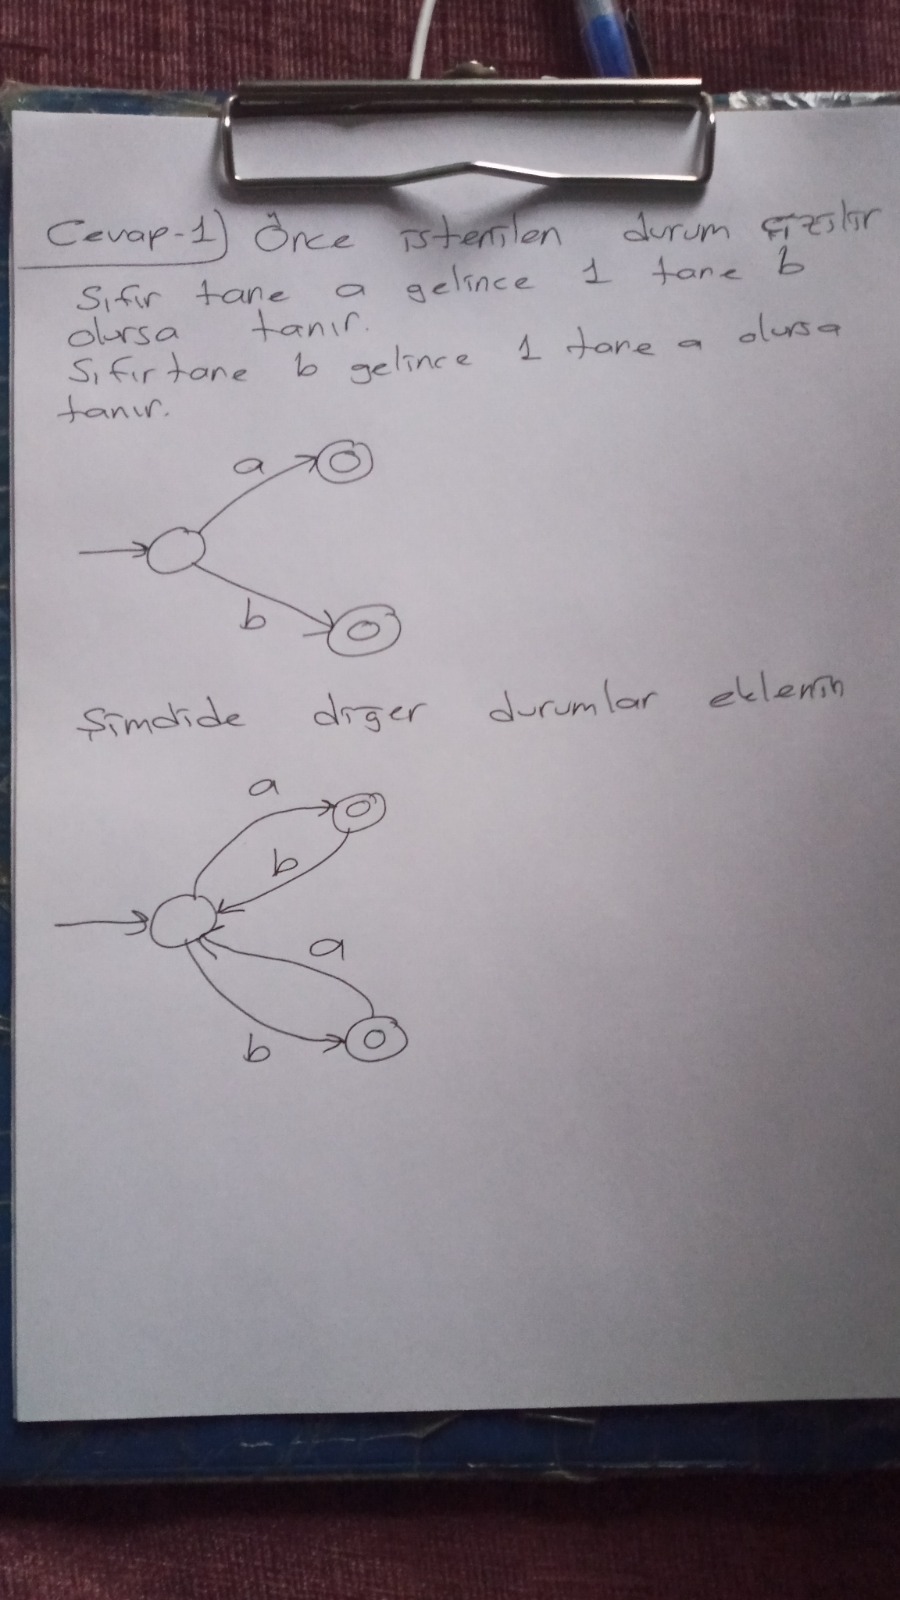 Cevap-1) Önce istenilen durum çizilir
Sıfır tane a gelince 1 tane b
olursa tanır.
Sıfır tane b gelince 1 tane a olursa
tanır.
a
b
Şimdide diğer durumlar eklenin
a
b
a
b